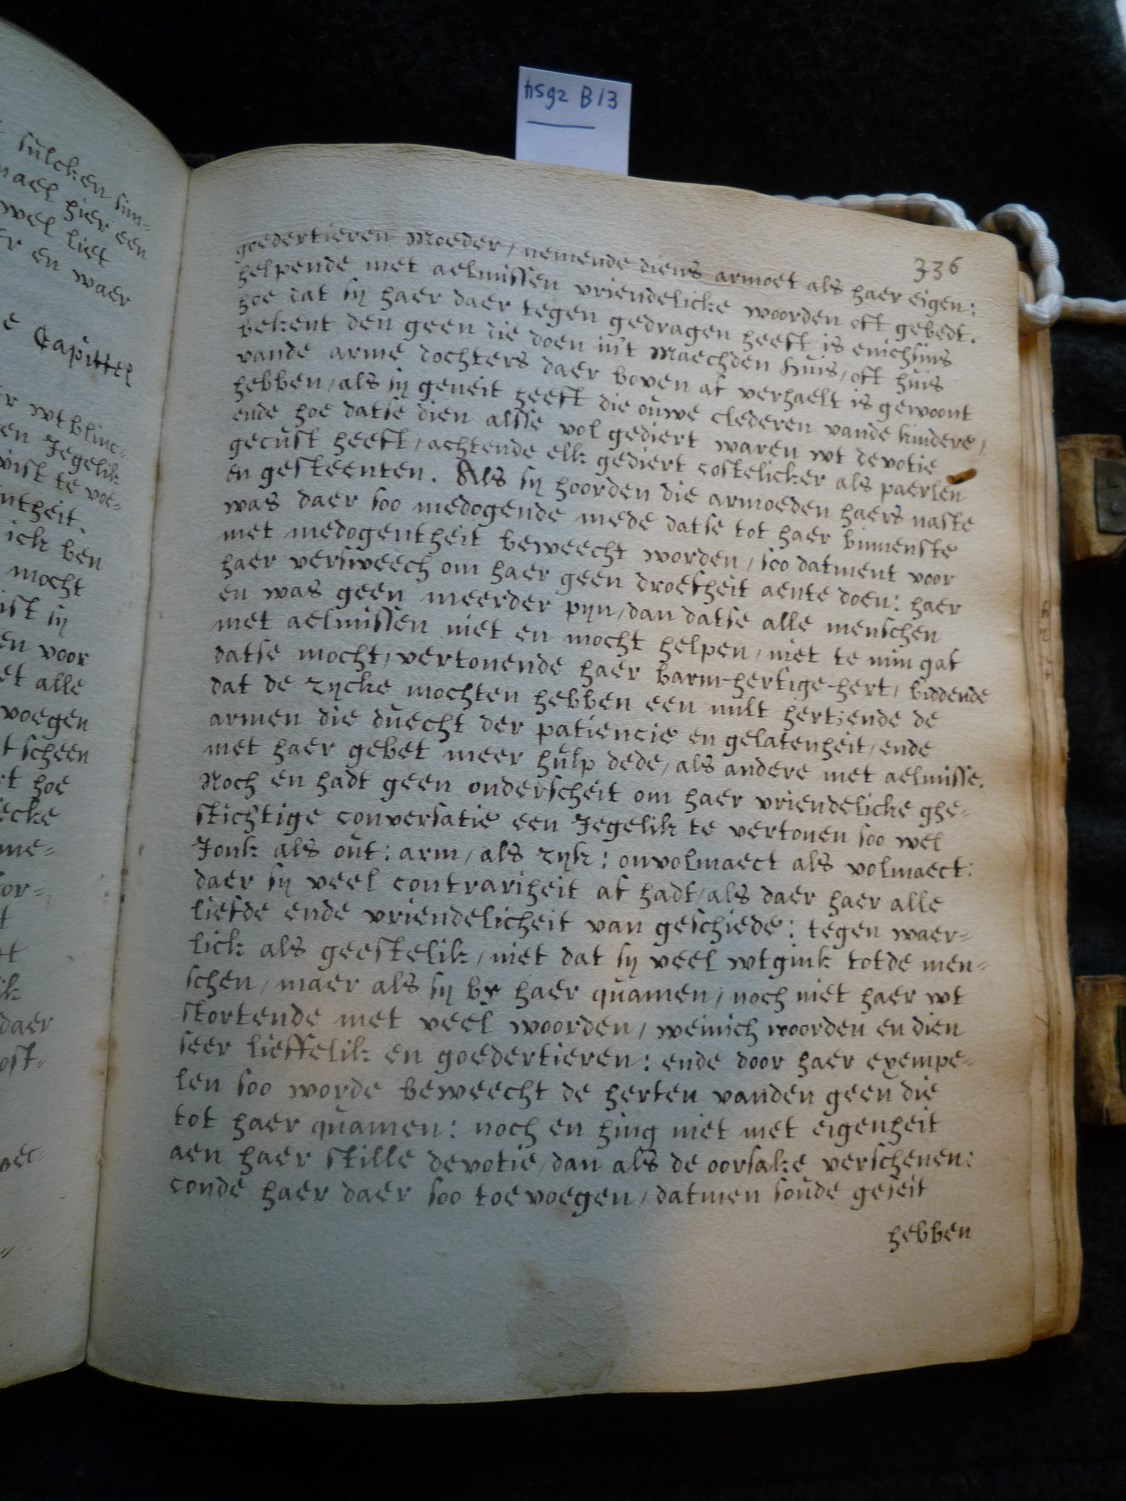 hsg2 B13
sulcken sim-
mael hier een
wel liet
er en waer
Capittel
r wtblinc-
en Jegelik
wist te voe-
ntheit.
ick ben
mocht
ist sy
en voor
et alle
voegen
t scheen
t hoe
ecke
me-
or-
t
et
ik
daer
ost-
336
goedertieren Moeder, nemende diens armoet als haer eigen:
helpende met aelmissen vriendelicke woorden oft gebedt.
hoe dat sy haer daer tegen gedragen heeft is enichsins
bekent den geen die doen in't Maechden huis, oft huis
vande arme dochters daer boven af verhaelt is gewoont
hebben, als sy geneit heeft die ouwe clederen vande kindere,
ende hoe datse dien alsse vol gediert waren wt devotie
gecust heeft, achtende elk gediert costelicker als paerlen
en gesteenten. Als sy hoorden die armoeden haers naste
was daer soo medogende mede datse tot haer binnenste
met medogentheit beweecht worden, soo datment voor
haer versweech om haer geen droefheit aente doen: haer
en was geen meerder pyn, dan datse alle menschen
met aelmissen niet en mocht helpen, niet te min gaf
datse mocht, vertonende haer barm-hertige-hert, biddende
dat de rycke mochten hebben een milt hert: ende de
armen die duecht der patiencie en gelatenheit, ende
met haer gebet meer hulp dede, als andere met aelmisse.
Noch en hadt geen onderscheit om haer vriendelicke ghe-
stichtige conversatie een Jegelik te vertonen soo wel
Jonk als out: arm, als ryk: onvolmaect als volmaect:
daer sy veel contrariheit af hadt, als daer haer alle
liefde ende vriendelicheit van geschiede: tegen waer-
lick als geestelik, niet dat sy veel wtgink totde men-
schen, maer als sy by haer quamen, noch niet haer wt
stortende met veel woorden, weinich woorden en dien
seer lieffelik en goedertieren: ende door haer exempe-
len soo worde beweecht de herten vanden geen die
tot haer quamen: noch en hing niet met eigenheit
aen haer stille devotie, dan als de oorsake verschenen:
conde haer daer soo toevoegen, datmen soude geseit
hebben